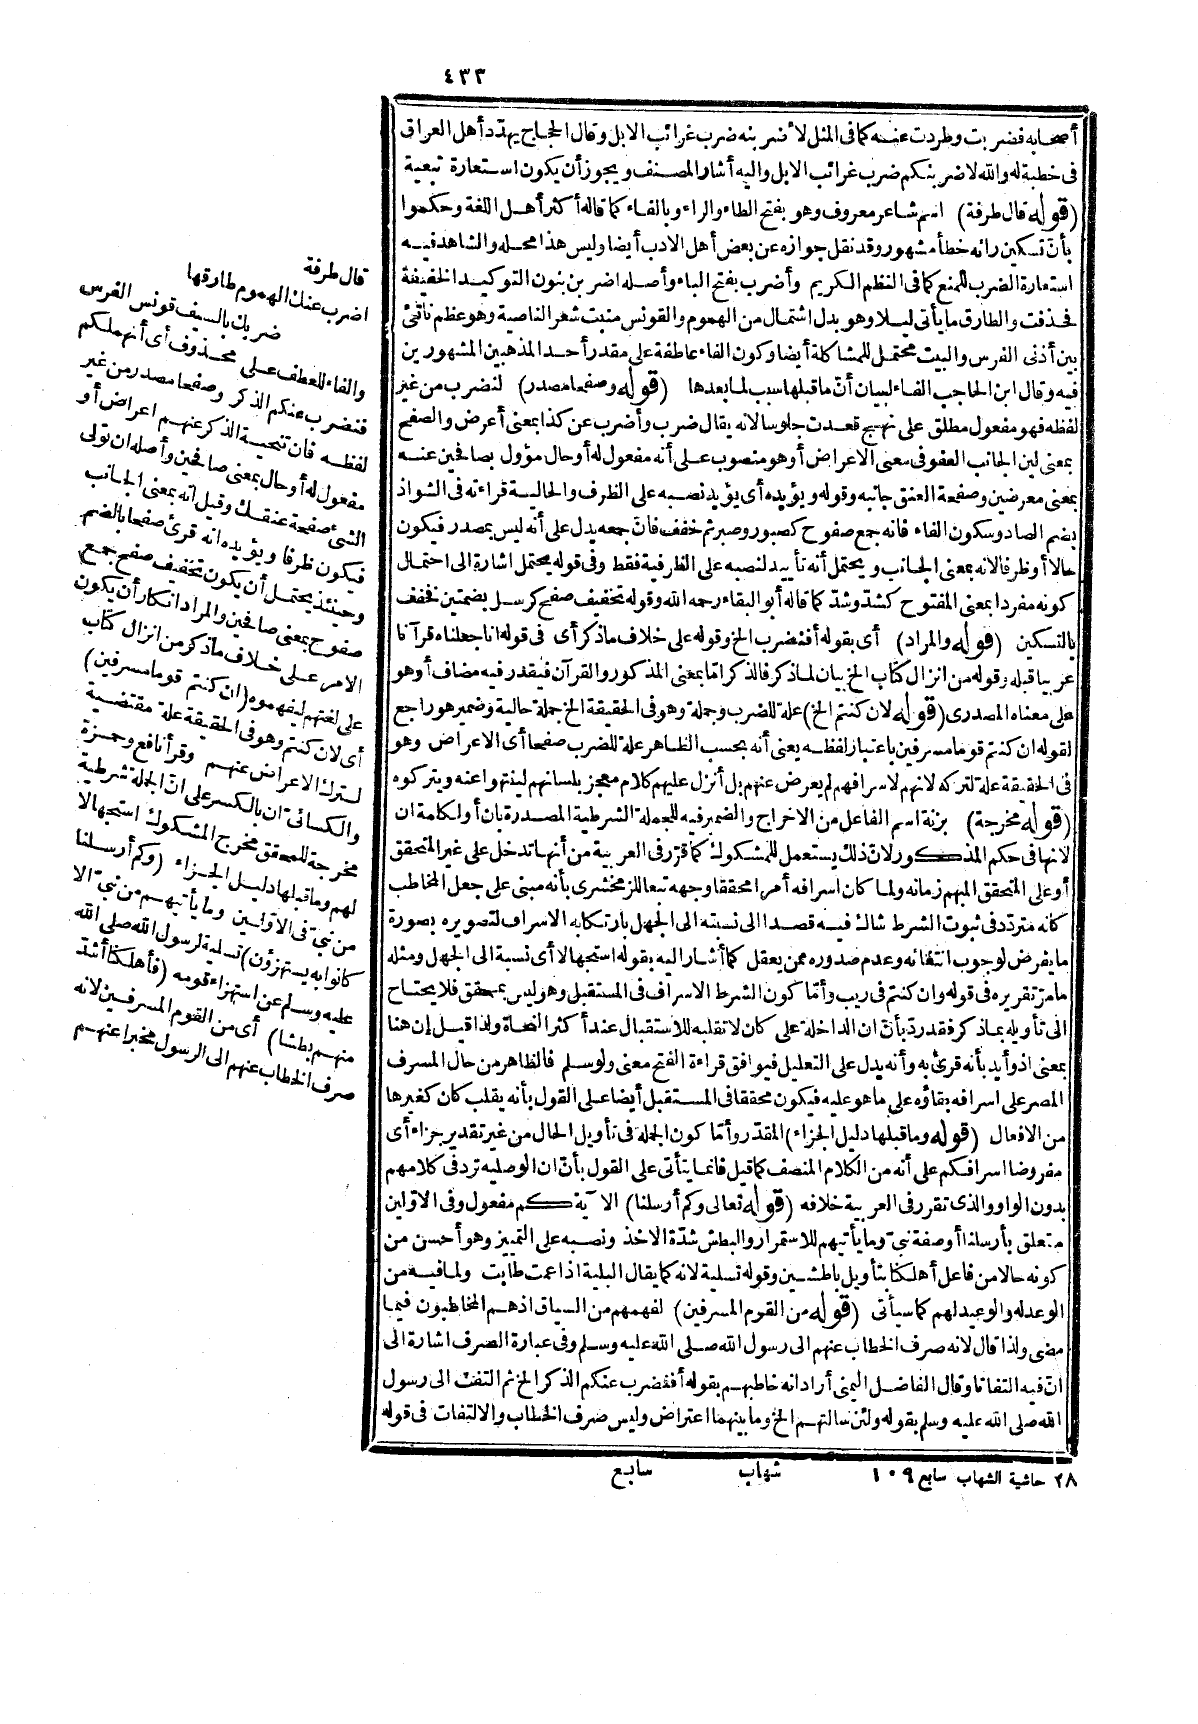 ٤٣٣
أصحابه فضربت وطردت عنه كما فى المثل لأضربنه ضرب غرائب الابل وقال الحجاج يهدّد أهل العراق
فى خطبة له والله لاضربنكم ضرب غرائب الابل واليه أشار المصنف ويجوز أن يكون استعارة تبعية
(قوله قال طرفة) اسم شاعر معروف وهو بفتح الطاء والراء وبالفاء كما قاله أكثر أهل اللغة وحكموا
بأنّ تسكين رائه خطأ مشهور وقد نقل جوازه عن بعض أهل الادب أيضا وليس هذا محله والشاهد فيه
استعارة الضرب للمنع كما فى النظم الكريم وأضرب بفتح الباء وأصله اضربن بنون التوكيد الخفيفة
فحذفت والطارق ما يأتى ليلا وهو بدل اشتمال من الهموم والقونس منبت شعر الناصية وهو عظم ناتئ
بين أذنى الفرس والبيت محتمل للمشاكلة أيضا وكون الفاء عاطفة على مقدر أحد المذهبين المشهورين
فيه وقال ابن الحاجب الفاء لبيان أنّ ما قبلها سبب لما بعدها (قوله وصفحا مصدر) لنضرب من غير
لفظه فهو مفعول مطلق على نهج قعدت جلوسا لانه يقال ضرب وأضرب عن كذا بمعنى أعرض والصفح
بمعنى لين الجانب العفو فى معنى الاعراض أو هو منصوب على أنه مفعول له أو حال مؤول بصافحين عنه
بمعنى معرضين وصفحة العنق جانبه وقوله ويؤيده أى يؤيد نصبه على الظرف والحالية قراءته فى الشواذ
بضم الصاد وسكون الفاء فانه جمع صفوح كصبور وصبر ثم خفف فانّ جمعه يدل على أنه ليس بمصدر فيكون
حالا أو ظرفا لانه بمعنى الجانب ويحتمل أنه تأييد لنصبه على الظرفية فقط وفى قوله يحتمل اشارة الى احتمال
كونه مفردا بمعنى المفتوح كشد وشد كما قاله أبو البقاء رحمه الله وقوله تخفيف صفح كرسل بضمتين فخفف
بالتسكين (قوله والمراد) أى بقوله أفنضرب الخ وقوله على خلاف ما ذكر أى فى قوله انا جعلناه قرآنا
عربيا قبله وقوله من انزال كتاب الخ بيان لما ذكر فالذكر امّا بمعنى المذكور والقرآن فيقدر فيه مضاف أو هو
على معناه المصدرى (قوله لان كنتم الخ) علة للضرب وجملة وهو فى الحقيقة الخ جملة حالية وضمير هو راجع
لقوله ان كنتم قوما مسرفين باعتبار لفظه يعنى أنه بحسب الظاهر علة للضرب صفحا أى الاعراض وهو
فى الحقيقة علة لتركه لانهم لاسرافهم لم يعرض عنهم بل أنزل عليهم كلام معجز بلسانهم لينتهوا عنه ويتركوه
(قوله مخرجة) بزنة اسم الفاعل من الاخراج والضمير فيه للجملة الشرطية المصدرة بان أو لكلمة ان
لانها فى حكم المذكور لانّ ذلك يستعمل للمشكوك كما قرّر فى العربية من أنها تدخل على غير المتحقق
أو على المتحقق المبهم زمانه ولما كان اسرافه أمرا محققا وجهه تبعا للزمخشرى بأنه مبنى على جعل المخاطب
كانه متردّد فى ثبوت الشرط شاك فيه قصدا الى نسبته الى الجهل بارتكابه الاسراف لتصويره بصورة
ما يفرض لوجوب انتفائه وعدم صدوره ممن يعقل كما أشار اليه بقوله استجهالا أى نسبة الى الجهل ومثله
ما مرّ تقريره فى قوله وان كنتم فى ريب وأمّا كون الشرط الاسراف فى المستقبل وهو ليس بمحقق فلا يحتاج
الى تأويله بما ذكر فقد ردّ بأنّ ان الداخلة على كان لا تقلبه للاستقبال عند أكثر النحاة ولذا قيل إن هنا
بمعنى اذ وأيد بأنه قرئ به وأنه يدل على التعليل فيوافق قراءة الفتح معنى ولو سلم فالظاهر من حال المسرف
المصر على اسرافه بقاؤه على ما هو عليه فيكون محققا فى المستقبل أيضا على القول بأنه يقلب كان كغيرها
من الافعال (قوله وما قبلها دليل الجزاء) المقدّر وأمّا كون الجملة فى تأويل الحال من غير تقدير جزاء أى
مفروضا اسرافكم على أنه من الكلام المنصف كما قيل فانما يتأتى على القول بأنّ ان الوصلية ترد فى كلامهم
بدون الواو والذى تقرر فى العربية خلافه (قوله تعالى وكم أرسلنا) الآية كم مفعول وفى الاوّلين
متعلق بأرسلنا أو صفة نبىّ وما يأتيهم للاستمرار والبطش شدّة الاخذ ونصبه على التمييز وهو أحسن من
كونه حالا من فاعل أهلكنا بتأويل باطشين وقوله تسلية لانه كما يقال البلية اذا عمت طابت ولما فيه من
الوعد له والوعيد لهم كما سيأتى (قوله من القوم المسرفين) لفهمهم من السياق اذ هم المخاطبون فيما
مضى ولذا قال لانه صرف الخطاب عنهم الى رسول الله صلى الله عليه وسلم وفى عبارة الصرف اشارة الى
انّ فيه التفاتا وقال الفاضل اليمنى أراد انه خاطبهم بقوله أفنضرب عنكم الذكر الخ ثم التفت الى رسول
الله صلى الله عليه وسلم بقوله ولئن سألتهم الخ وما بينهما اعتراض وليس صرف الخطاب والالتفات فى قوله
قال طرفة
اضرب عنك الهموم طارقها
ضربك بالسيف قونس الفرس
والفاء للعطف على محذوف أى أنهملكم
فنضرب عنكم الذكر وصفحا مصدر من غير
لفظه فان تنحية الذكر عنهم اعراض أو
مفعول له أو حال بمعنى صافحين وأصله ان تولى
الشئ صفحة عنقك وقيل انه بمعنى الجانب
فيكون ظرفا ويؤيده انه قرئ صفحا بالضم
وحينئذ يحتمل أن يكون تخفيف صفح جمع
صفوح بمعنى صافحين والمراد انكار أن يكون
الامر على خلاف ما ذكر من انزال كتاب
على لغتهم ليفهموه (ان كنتم قوما مسرفين)
أى لان كنتم وهو فى الحقيقة علة مقتضية
لترك الاعراض عنهم وقرأ نافع وحمزة
والكسائىّ ان بالكسر على انّ الجملة شرطية
مخرجة للمحقق مخرج المشكوك استجهالا
لهم وما قبلها دليل الجزاء (وكم أرسلنا
من نبىّ فى الاوّلين وما يأتيهم من نبىّ الا
كانوا به يستهزؤن) تسلية لرسول الله صلى الله
عليه وسلم عن استهزاء قومه (فأهلكنا أشد
منهم بطشا) أى من القوم المسرفين لانه
صرف الخطاب عنهم الى الرسول مخبرا عنهم
٢٨ حاشية الشهاب سابع ١٠٩ شهاب سابع